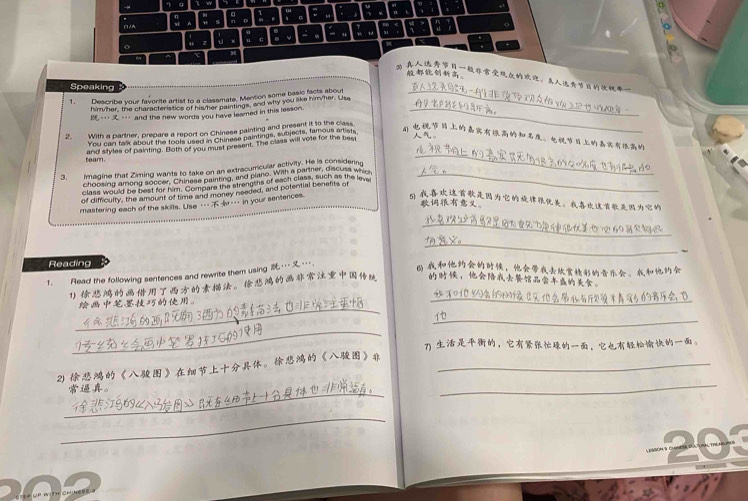 Speaking
1. Describe your favorite artist to a classmate. Mention some basic facts about
him/her, the characteristics of his/her paintings, and why you like him/her. Use
既…又… and the new words you have learned in this lesson.
2. With a partner, prepare a report on Chinese painting and present it to the class.
You can talk about the tools used in Chinese paintings, subjects, famous artists,
and styles of painting. Both of you must present. The class will vote for the best
team.
3. Imagine that Ziming wants to take on an extracurricular activity. He is considering
choosing among soccer, Chinese painting, and piano. With a partner, discuss which
class would be best for him. Compare the strengths of each class, such as the level
of difficulty, the amount of time and money needed, and potential benefits of
mastering each of the skills. Use …不如… in your sentences.
Reading
1. Read the following sentences and rewrite them using 既…又….
1) 徐悲鸿的画借用了西方的素描法。徐悲鸿的画非常注重中国传统
绘画中笔墨技巧的使用。
徐悲鸿的画既用了西方的素描法也非常注重中国
传统绘画中笔墨技巧的使用
2) 徐悲鸿的《八骏图》在细节上十分具体。徐悲鸿的《八骏图》非
常逼真。
徐悲鸿的《八骏图》既在细节上十分具体也非常逼真。
202
STEP UP WITH CHINESE 3
3) 真人选秀节目一般非常受观众的欢迎。真人选秀节目的收视率一
般都能创新高。
4) 电视节目上的嘉宾有很高的知名度。电视节目上的嘉宾有很高的
人气。
人气。
5) 我喜欢这首歌是因为它的旋律很优美。我喜欢这首歌是因为它的
歌词很有意义。
有意义。
6) 我和他约会的时候，他会带我去欣赏精彩的音乐会。我和他约会
的时候，他会陪我去餐馆品尝丰盛的美食。
他
7) 生活是平衡的，它有紧张忙碌的一面，它也有轻松愉快的一面。
LESSON 9 CHINESE CULTURAL TREASURES
203